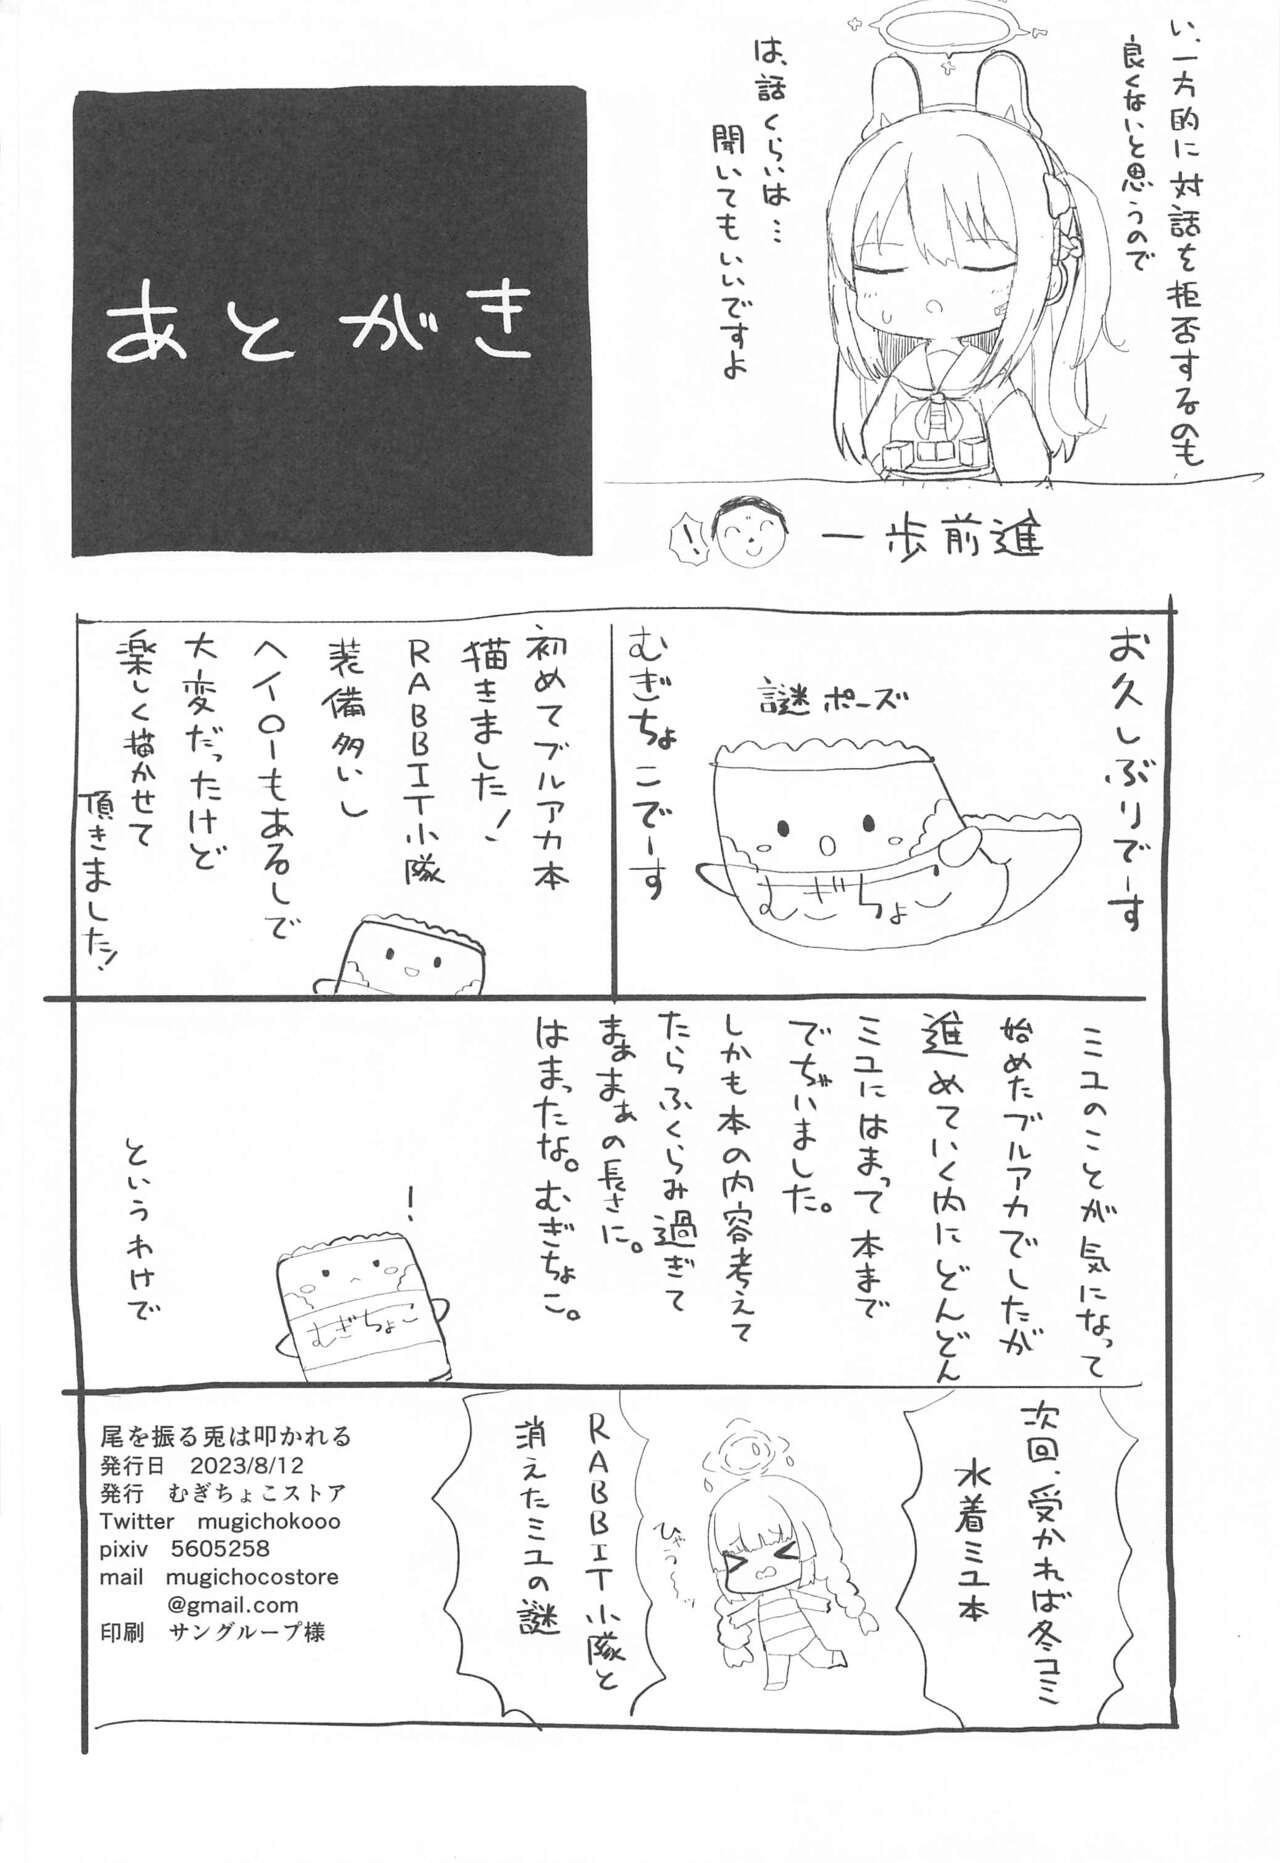 い、一方的に対話を拒否するのも
良くないと思うので
は、話くらいは…
聞いてもいいですよ
！
一歩前進
あとがき
お久しぶりでーす
謎ポーズ
むぎちょこ
むぎちょこでーす
初めてブルアカ本
描きました！
RABBIT小隊
装備多いし
ヘイローもあるしで
大変だったけど
楽しく描かせて
頂きました！
ミユのことが気になって
始めたブルアカでしたが
進めていく内にどんどん
ミユにはまって本まで
でぢゃいました。
しかも本の内容考えて
たらふくらみ過ぎて
まぁまぁの長さに。
はまったな。むぎちょこ。
！
むぎちょこ
というわけで
次回、受かれば冬コミ
水着ミユ本
ひゃぅ～～
RABBIT小隊と
消えたミユの謎
尾を振る兎は叩かれる
発行日　2023/8/12
発行　むぎちょこストア
Twitter　mugichokooo
pixiv　5605258
mail　mugichocostore
@gmail.com
印刷　サングループ様